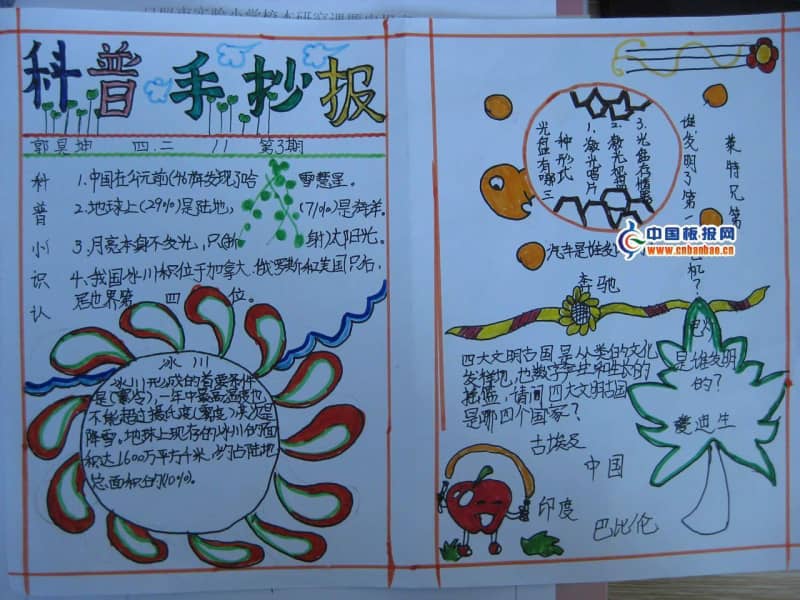 科普手抄报
郭昊坤 四.二 11 第3期
科普小识认
1.中国在公元前(46)年发现了哈雷慧星。
2.地球上(29%)是陆地,(71%)是海洋。
3.月亮本身不发光,只(射)太阳光。
4.我国冰川积位于加拿大.俄罗斯和美国只后,
居世界第 四 位。
冰川
冰川形成的首要条件
是(寒冷),一年中最高温度也
不能超过摄氏度(零度)
降雪。地球上现存的冰川的面
积达1600万平方千米,约占陆地
总面积的(10%)。
光盘有哪三
种形式
1.激光唱片
2.激光视盘
3.光盘存储器
谁发明了第一 机?
莱特兄弟
中国板报网
www.cnbanbao.cn
汽车是谁发
奔驰
四大文明古国是人类的文化
发样地,也数字学生和生长的
摇篮,请问四大文明古国
是哪四个国家?
古埃及
中国
印度
巴比伦
电灯
是谁发明
的?
爱迪生